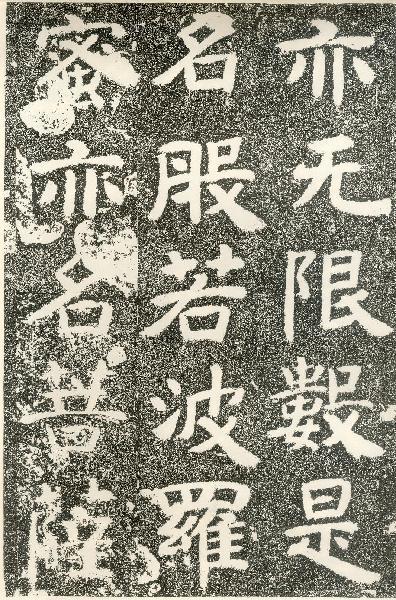 亦无限數是
名服若波羅
蜜亦名菩薩